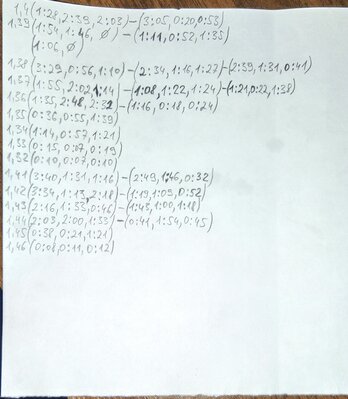 1,4 (1:28, 2:39, 2:03) – (3:05, 0:20, 0:53)
1,39 (1:54, 1:46, ∅) – (1:11, 0:52, 1:35)
(1:06, ∅)
1,38 (3:29, 0:56, 1:10) – (2:34, 1:16, 1:27) – (2:39, 1:31, 0:41)
1,37 (1:55, 2:02, 1:14) – (1:08, 1:22, 1:24) – (1:21, 0:22, 1:38)
1,36 (1:35, 2:48, 2:32) – (1:16, 0:18, 0:24)
1,35 (0:36, 0:55, 1:39)
1,34 (1:14, 0:57, 1:21)
1,33 (0:15, 0:07, 0:19)
1,32 (0:10, 0:07, 0:10)
1,41 (3:40, 1:31, 1:16) – (2:49, 1:46, 0:32)
1,42 (3:34, 1:13, 2:18) – (1:19, 1:09, 0:52)
1,43 (2:16, 1:33, 0:46) – (1:43, 1:00, 1:18)
1,44 (2:03, 2:00, 1:33) – (0:41, 1:54, 0:45)
1,45 (0:38, 0:21, 1:21)
1,46 (0:08, 0:11, 0:12)